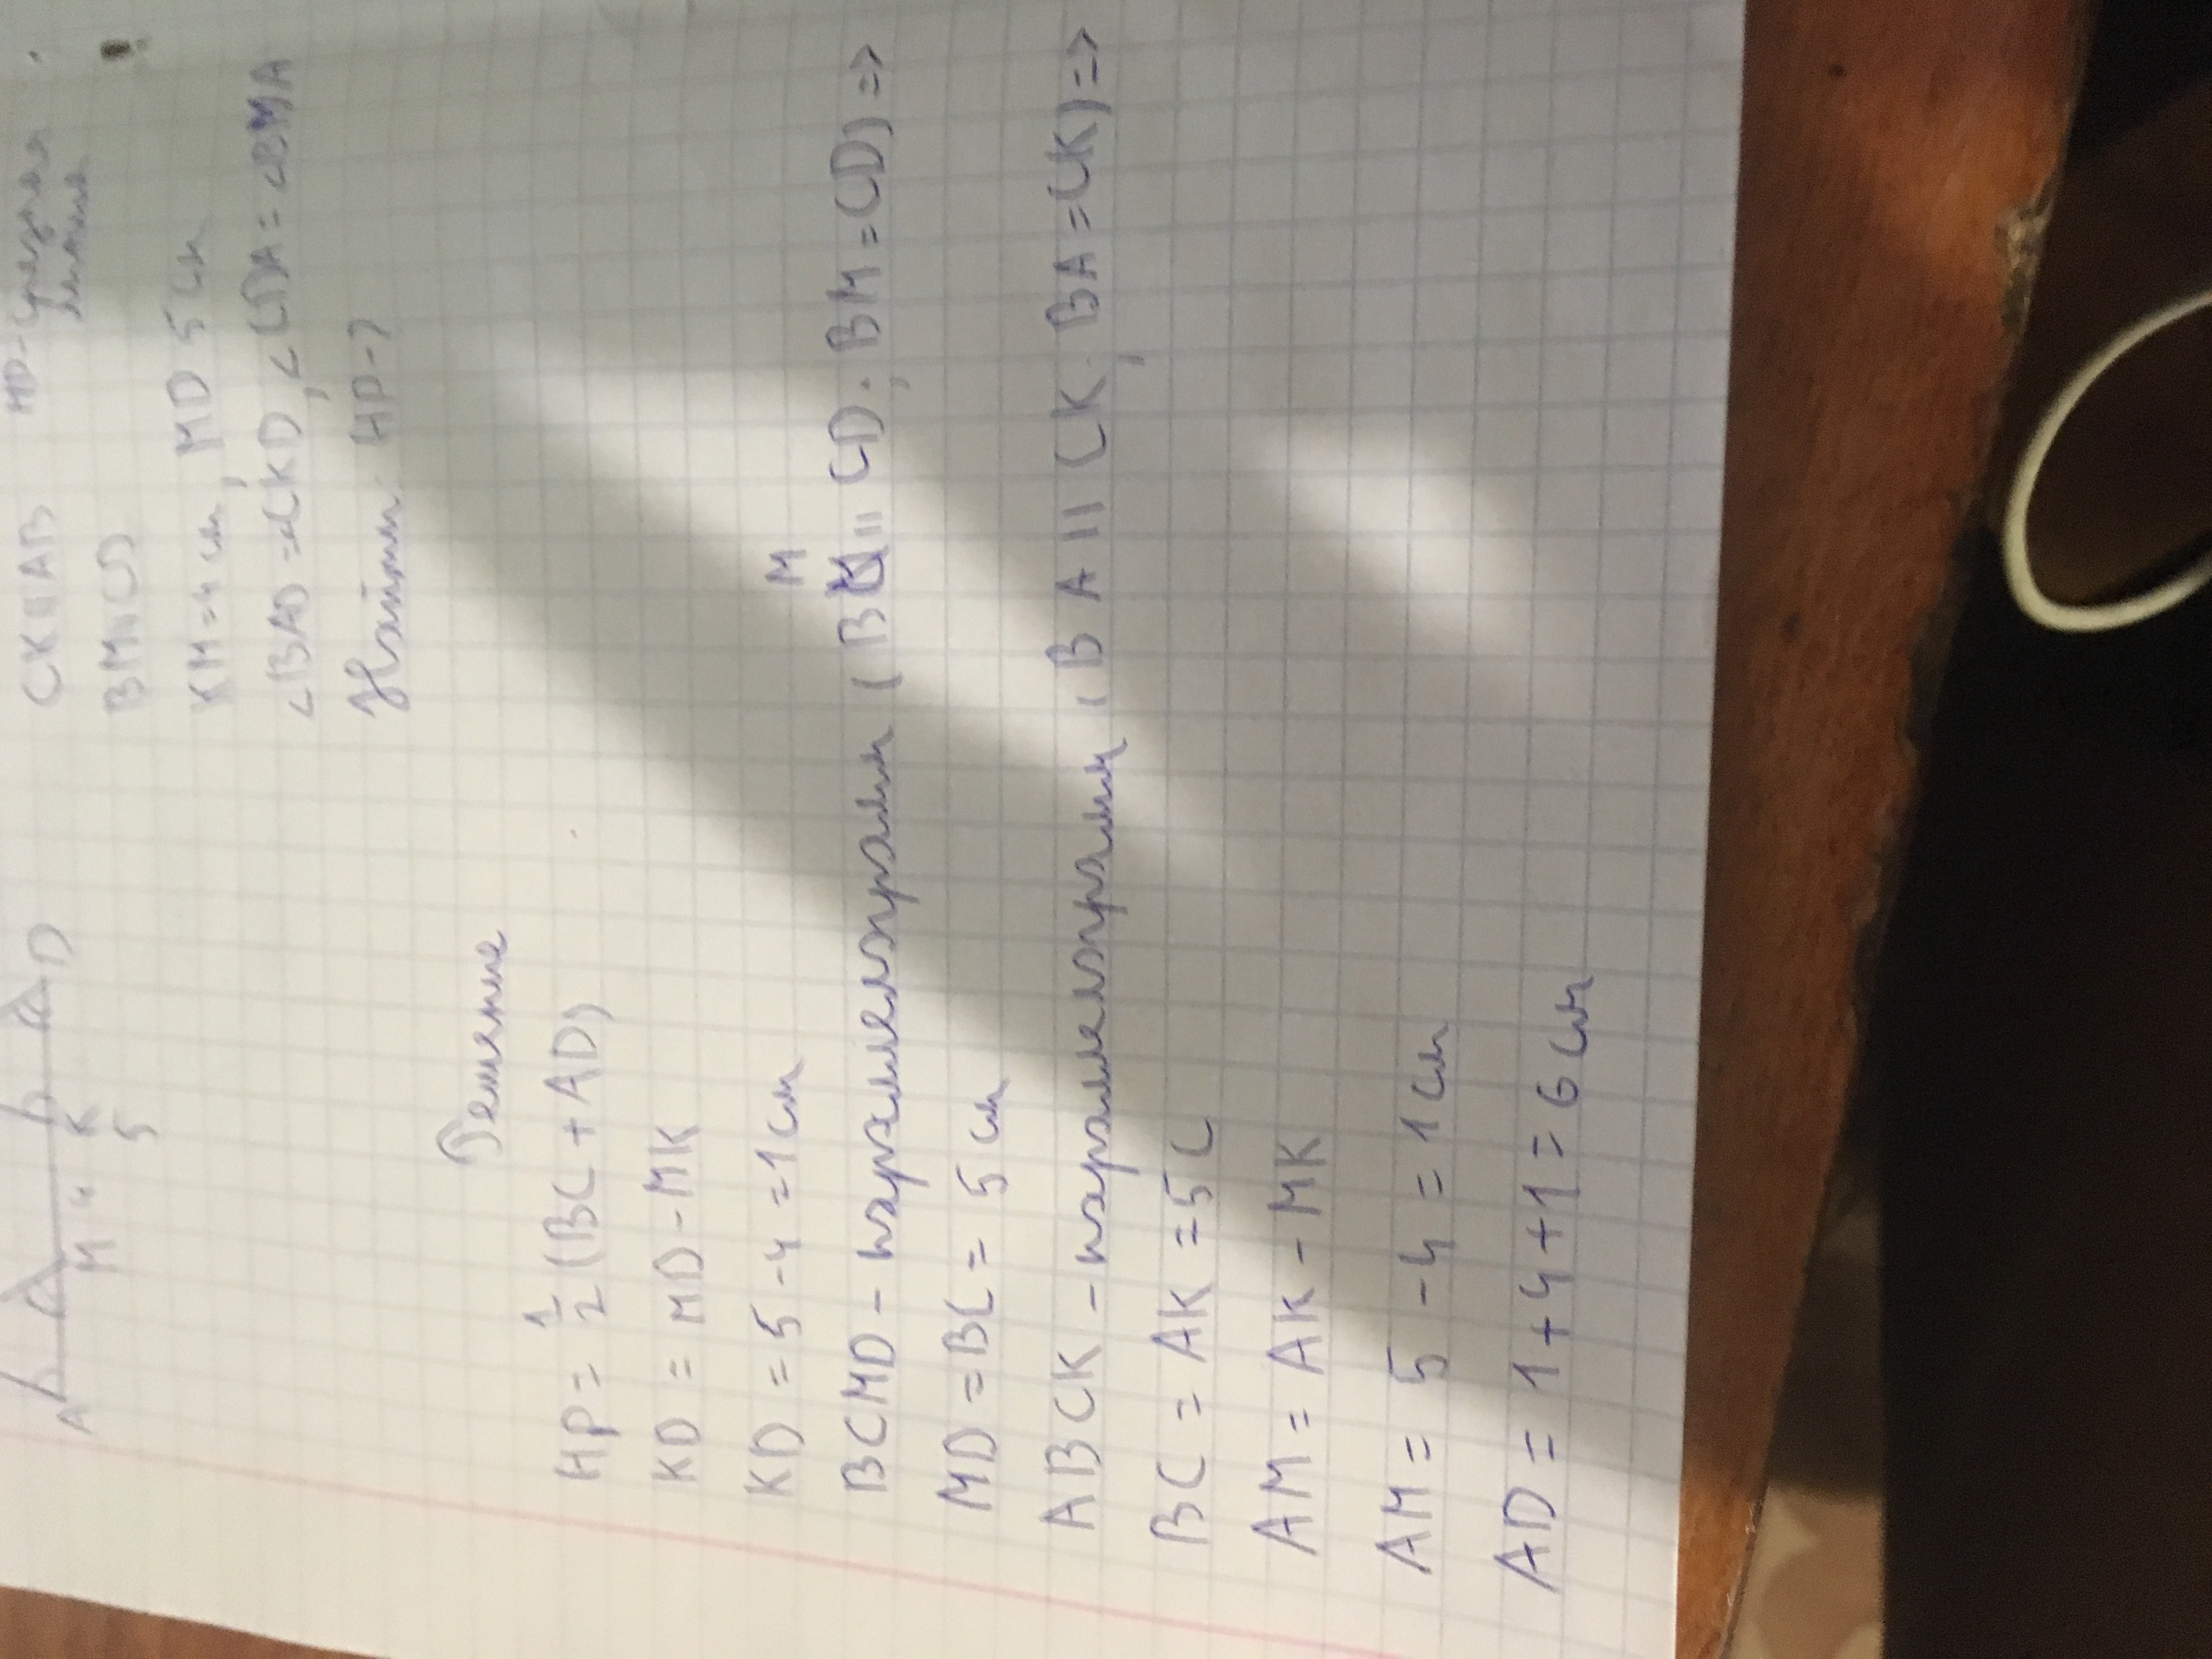 CK || AB HP - средняя
линия
BM || CD
KM = 4 см, MD 5 см
∠BAD = ∠CKD, ∠CDA = ∠BMA
Найти: HP - ?
A M 4 K D
5
Решение
HP = 1/2 (BC + AD)
KD = MD - MK
KD = 5 - 4 = 1 см
M
BCMD - параллелограмм ( B || CD; BM = CD) =>
MD = BC = 5 см
ABCK - параллелограмм ( BA || CK; BA = CK) =>
BC = AK = 5 C
AM = AK - MK
AM = 5 - 4 = 1 см
AD = 1 + 4 + 1 = 6 см